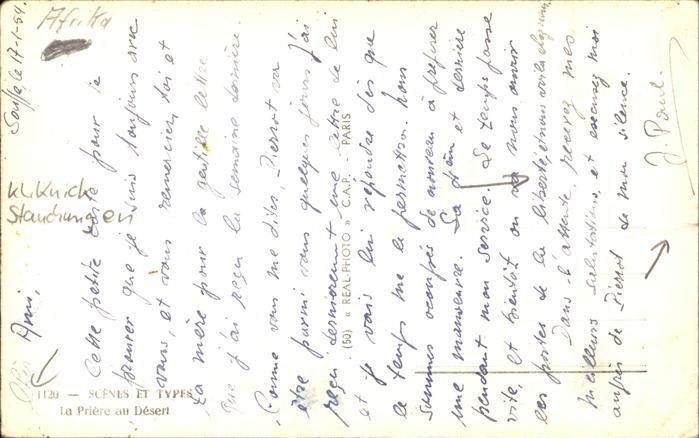 Afrika
Sousse, le 17-1-54.
Cher Ami,
Cette petite carte pour te
prouver que je suis toujours avec
vous, et vous remercier, toi et
ta mère pour la gentille lettre
que j'ai reçu la semaine dernière.
Comme vous me dites, Pierrot va
être parmi vous quelques jours, j'ai
reçu dernièrement une lettre de lui
et je vais lui répondre dès que
le temps me le permettra. Nous
sommes occupés de nouveau à préparer
une manœuvre. La
et derrière
pendant mon service. Le temps passe
vite, et bientôt on va nous ouvrir
les portes de la liberté, et nous voilà
Dans l'attente, recevez mes
meilleurs salutations, et excusez moi
auprès de Pierrot de mon silence.
J. Paul.
Stauchungen
(50) « REAL-PHOTO » C.A.P. - PARIS
1120 - SCÈNES ET TYPES
La Prière au Désert